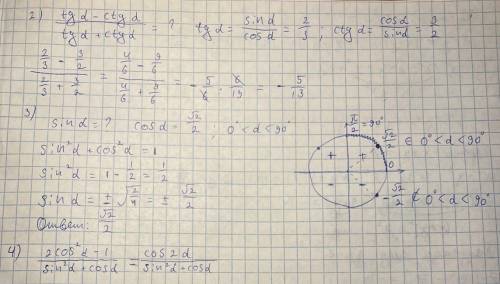 2) (tg d - ctg d)/(tg d + ctg d) = ? tg d = sin d/cos d = 2/3 ; ctg d = cos d/sin d = 3/2
(2/3 - 3/2)/(2/3 + 3/2) = (4/6 - 9/6)/(4/6 + 9/6) = - 5/6 · 6/13 = - 5/13
3) sin d = ? cos d = √2/2 ; 0° < d < 90°
sin² d + cos² d = 1
sin² d = 1 - 1/2 = 1/2
sin d = ± √2/√4 = ± √2/2
Ответ: √2/2
π/2 = 90°
√2/2 ∈ 0° < d < 90°
+ +
0
- -
- √2/2 ∉ 0° < d < 90°
4) (2cos² d - 1)/(sin² d + cos d) = cos 2d/(sin² d + cos d)